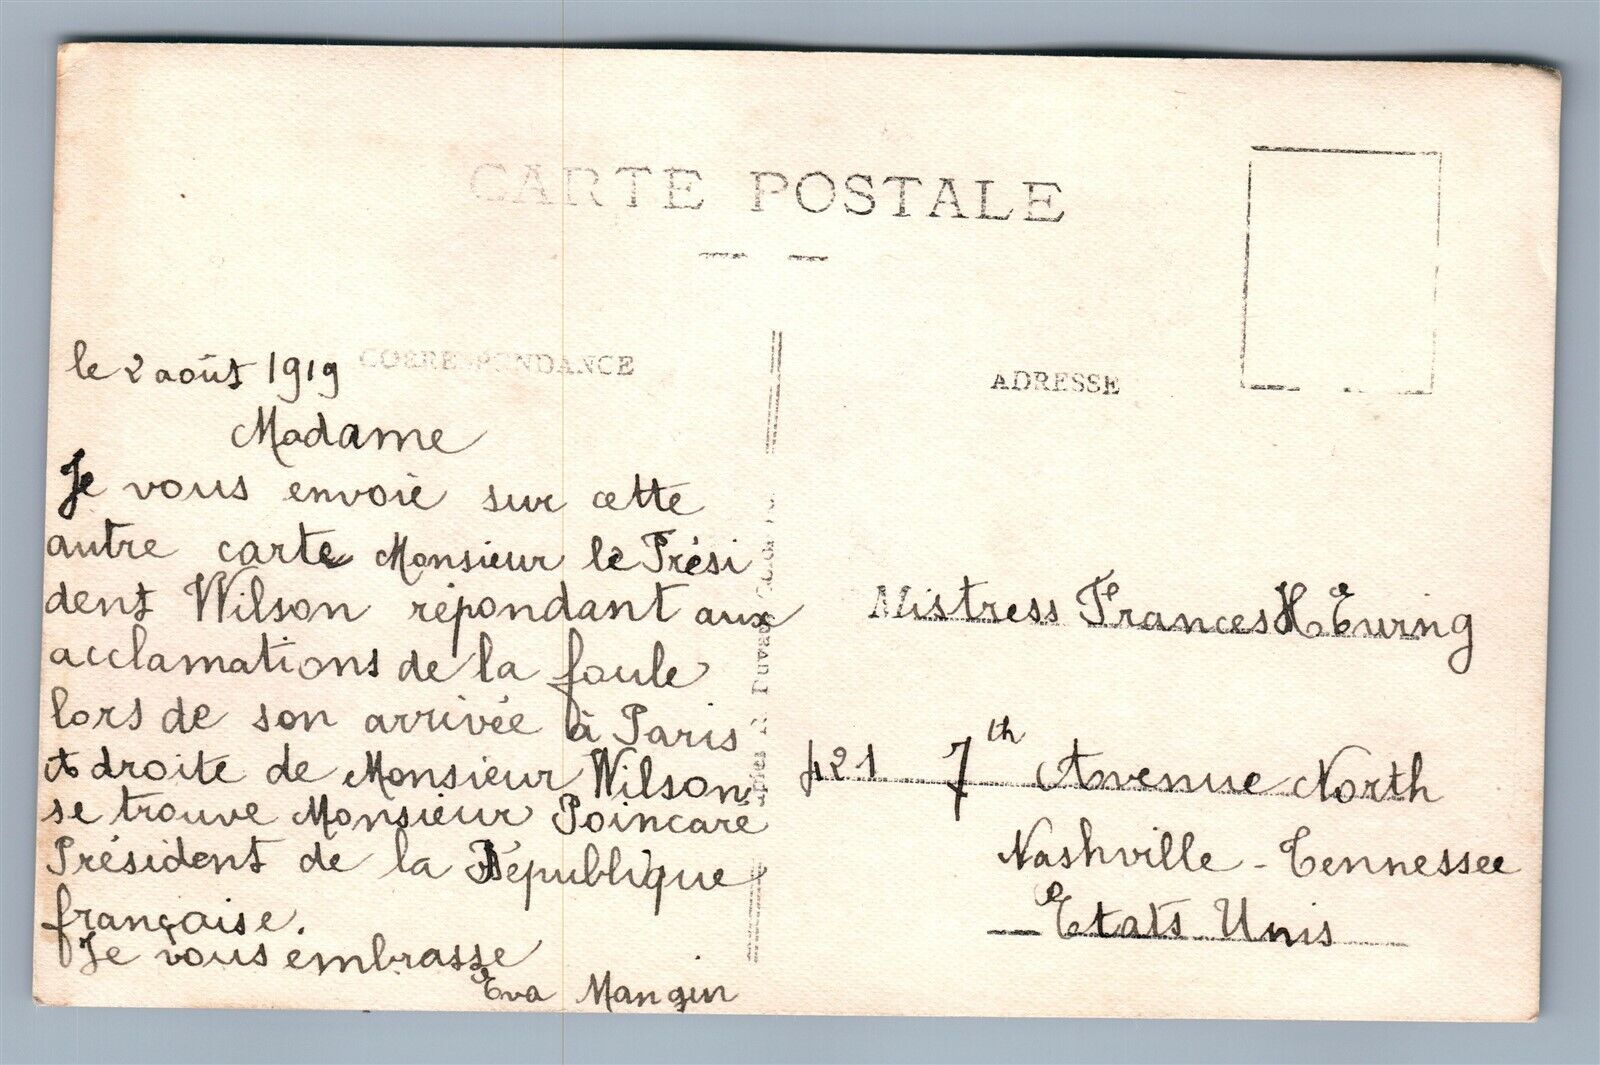 CARTE POSTALE
CORRESPONDANCE
le 2 août 1919
Madame
Je vous envoie sur cette
autre carte Monsieur le Prési
dent Wilson répondant aux
acclamations de la foule
lors de son arrivée à Paris
A droite de Monsieur Wilson
se trouve Monsieur Poincaré
Président de la République
française.
Je vous embrasse
Eva Mangin
ADRESSE
Mistress Frances H Ewing
421 7th Avenue North
Nashville - Tennessee
Etats Unis